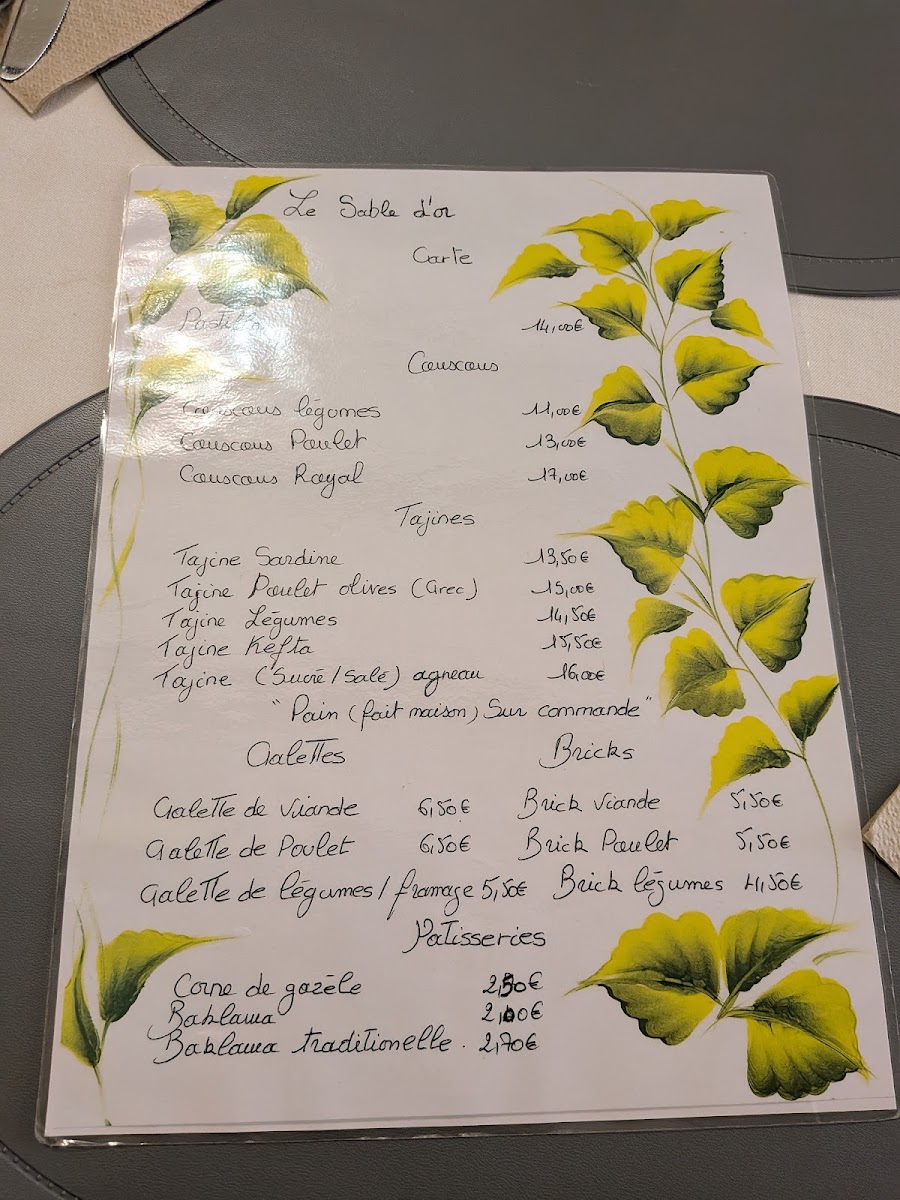 Le Sable d'or
Carte
Pastilla 14,00€
Couscous
Couscous légumes 11,00€
Couscous Poulet 13,00€
Couscous Royal 17,00€
Tajines
Tajine Sardine 13,50€
Tajine Poulet olives (Grec) 15,00€
Tajine Légumes 14,50€
Tajine Kefta 15,50€
Tajine (Sucré/Salé) agneau 16,00€
"Pain (fait maison) Sur commande"
Galettes Bricks
Galette de Viande 6,50€ Brick Viande 5,50€
Galette de Poulet 6,50€ Brick Poulet 5,50€
Galette de légumes/fromage 5,50€ Brick légumes 4,50€
Patisseries
Corne de gazèle 2,50€
Baklawa 2,00€
Baklawa traditionelle. 2,70€